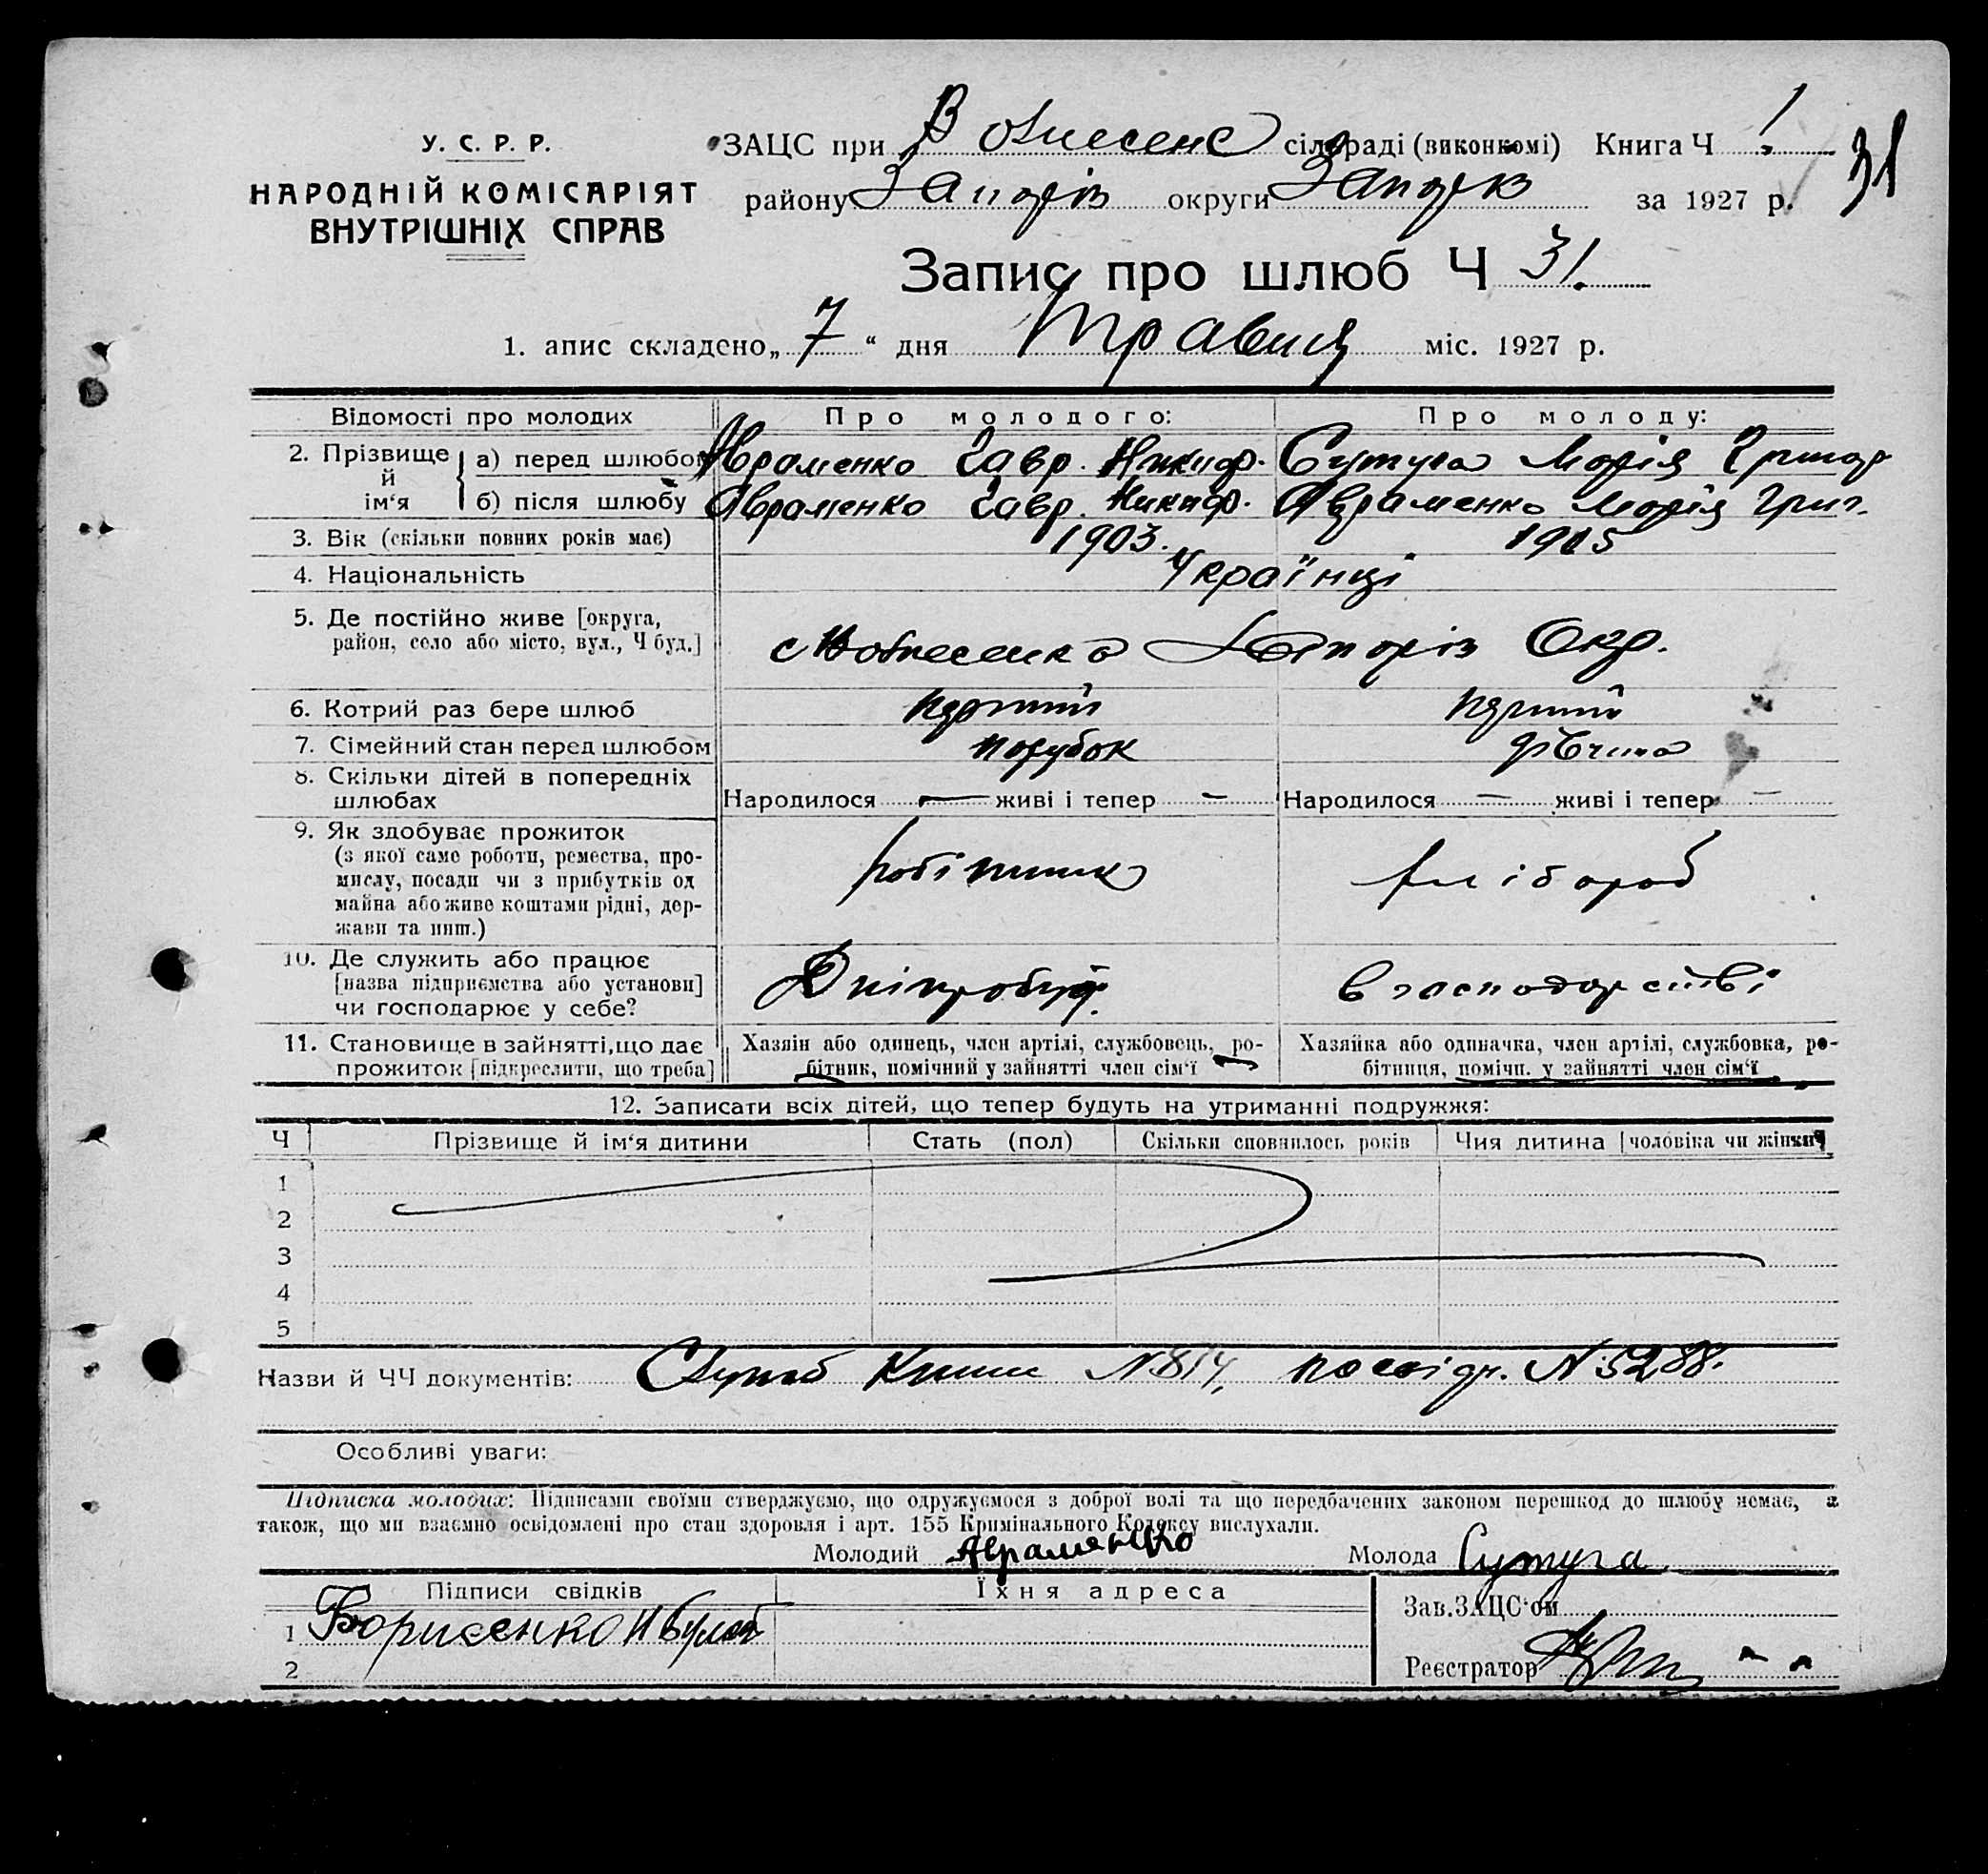 У. С. Р. Р.
НАРОДНІЙ КОМІСАРІЯТ
ВНУТРІШНІХ СПРАВ
ЗАЦС при Вознесенс сільраді (виконкомі) Книга Ч 1
31
району Запоріз округи Запоріз за 1927 р.
Запис про шлюб Ч 31.
1. апис складено „ 7 “ дня Травня міс. 1927 р.
Відомості про молодих Про молодого: Про молоду:
2. Прізвище й ім‘я
а) перед шлюбом Авраменко Гавр. Никиф. Сутуга Марія Григор
б) після шлюбу Авраменко Гавр. Никиф. Авраменко Марія Григ.
3. Вік (скільки повних років має) 1903. 1905
4. Національність Українці
5. Де постійно живе [округа,
район, село або місто, вул., Ч буд.] с Вознесенка Запоріз Окр.
6. Котрий раз бере шлюб перший перший
7. Сімейний стан перед шлюбом парубок дівчина
8. Скільки дітей в попередніх
шлюбах Народилося — живі і тепер — Народилося — живі і тепер —
9. Як здобуває прожиток
(з якої саме роботи, ремества, про-
мислу, посади чи з прибутків од
майна або живе коштами рідні, дер-
жави та инш.)
робітник хлібороб
10. Де служить або працює
[назва підприємства або установи]
чи господарює у себе?
Дніпробуд. в господарстві
11. Становище в зайнятті, що дає
прожиток [підкреслити, що треба]
Хазяін або одинець, член артілі, службовець, ро-
бітник, помічний у зайнятті член сім‘ї
Хазяйка або одиначка, член артілі, службовка, ро-
бітниця, помічн. у зайнятті член сім‘ї
12. Записати всіх дітей, що тепер будуть на утриманні подружжя:
Ч Прізвище й ім‘я дитини Стать (пол) Скільки сповнилось років Чия дитина [чоловіка чи жінки]
1
2
3
4
5
Назви й ЧЧ документів: Служб Книж N814, посвідч. N5288.
Особливі уваги:
Підписка молодих: Підписами своїми стверджуємо, що одружуємося з доброї волі та що передбачених законом перешкод до шлюбу немає, а
також, що ми взаємно освідомлені про стан здоровля і арт. 155 Кримінального Кодексу вислухали.
Молодий Авраменко Молода Сутуга
Підписи свідків Їхня адреса Зав. ЗАЦС‘ом
1 Борисенко
2 Реєстратор